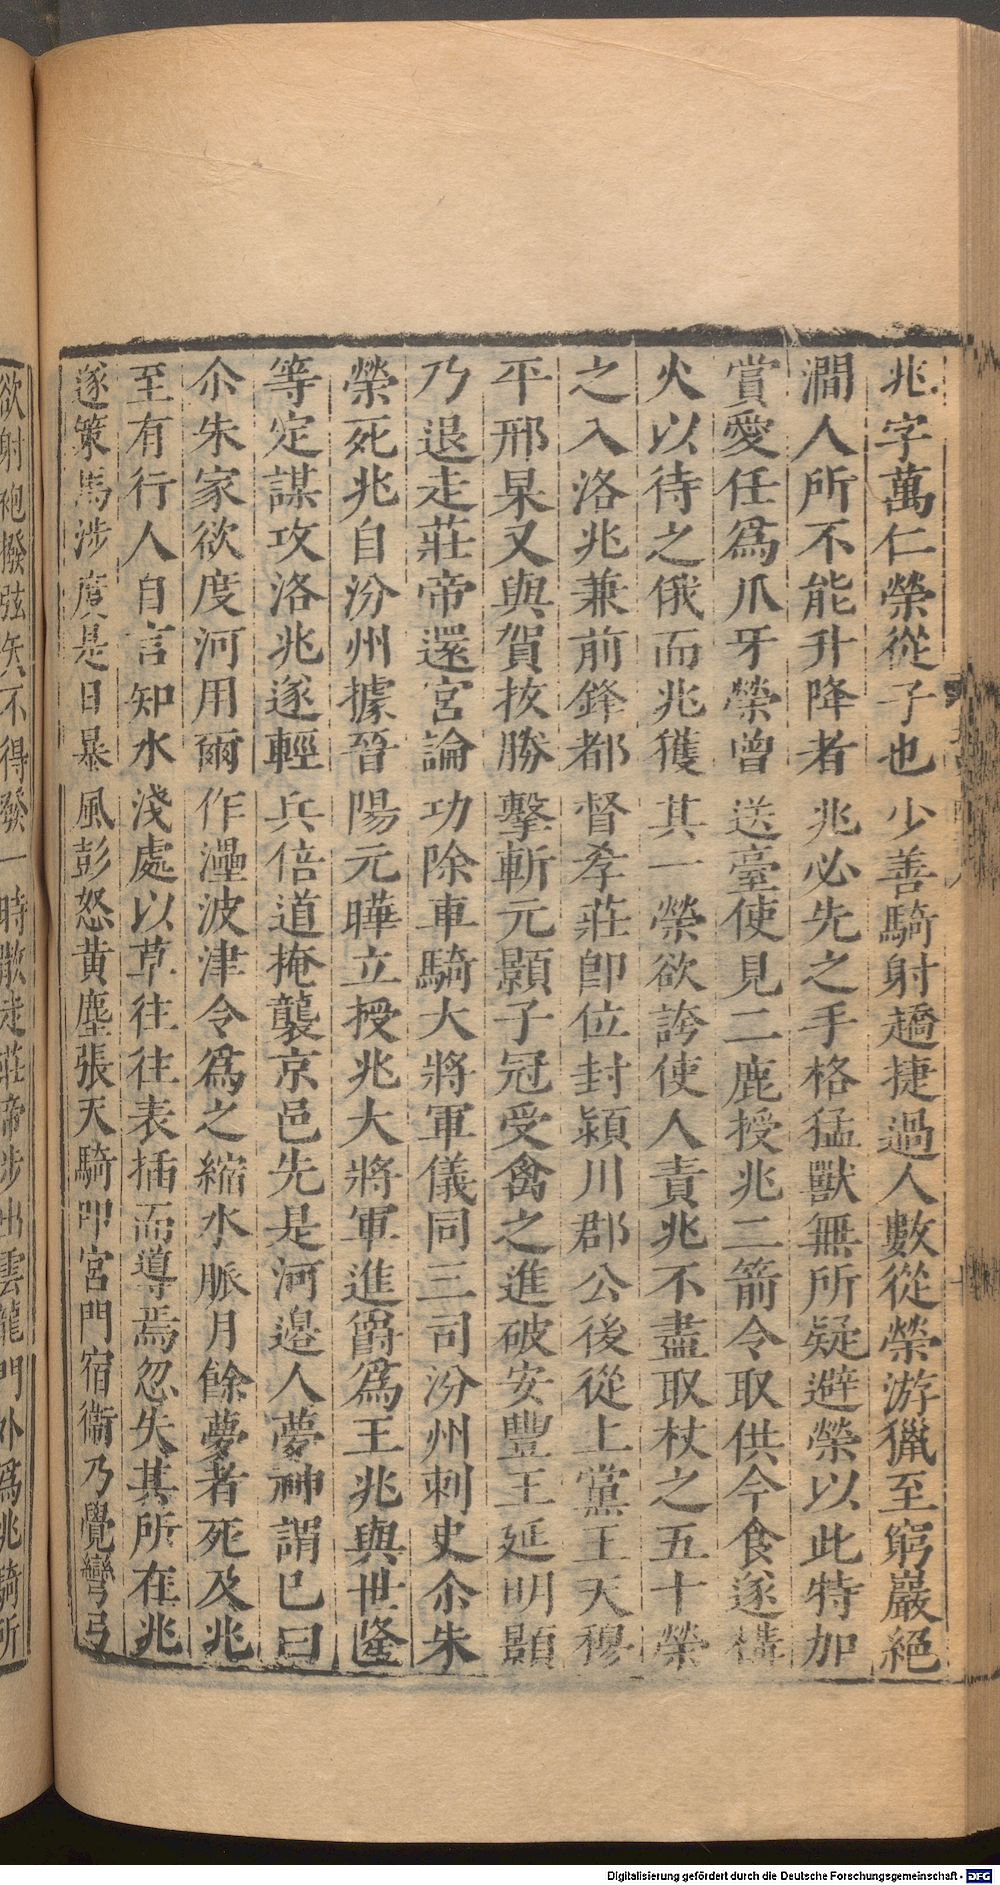 兆字萬仁榮從子也少善騎射趫捷過人數從榮游獵至窮巖絕
澗人所不能升降者兆必先之手格猛獸無所疑避榮以此特加
賞愛任爲爪牙榮曾送臺使見二鹿授兆二箭令取供今食遂構
火以待之俄而兆獲其一榮欲誇使人責兆不盡取杖之五十榮
之入洛兆兼前鋒都督孝莊卽位封潁川郡公後從上黨王天穆
平邢杲又與賀拔勝擊斬元顥子冠受禽之進破安豐王延明顥
乃退走莊帝還宮論功除車騎大將軍儀同三司汾州刺史尒朱
榮死兆自汾州據晉陽元曄立授兆大將軍進爵爲王兆與世隆
等定謀攻洛兆遂輕兵倍道掩襲京邑先是河邊人夢神謂已曰
尒朱家欲度河用爾作灅波津令爲之縮水脈月餘夢者死及兆
至有行人自言知水淺處以草往往表插而導焉忽失其所在兆
遂策馬涉度是日暴風彭怒黃塵張天騎叩宮門宿衞乃覺彎弓
欲射袍撥弦矢不得發一時散走莊帝步出雲龍門外爲兆騎所
Digitalisierung gefördert durch die Deutsche Forschungsgemeinschaft - DFG